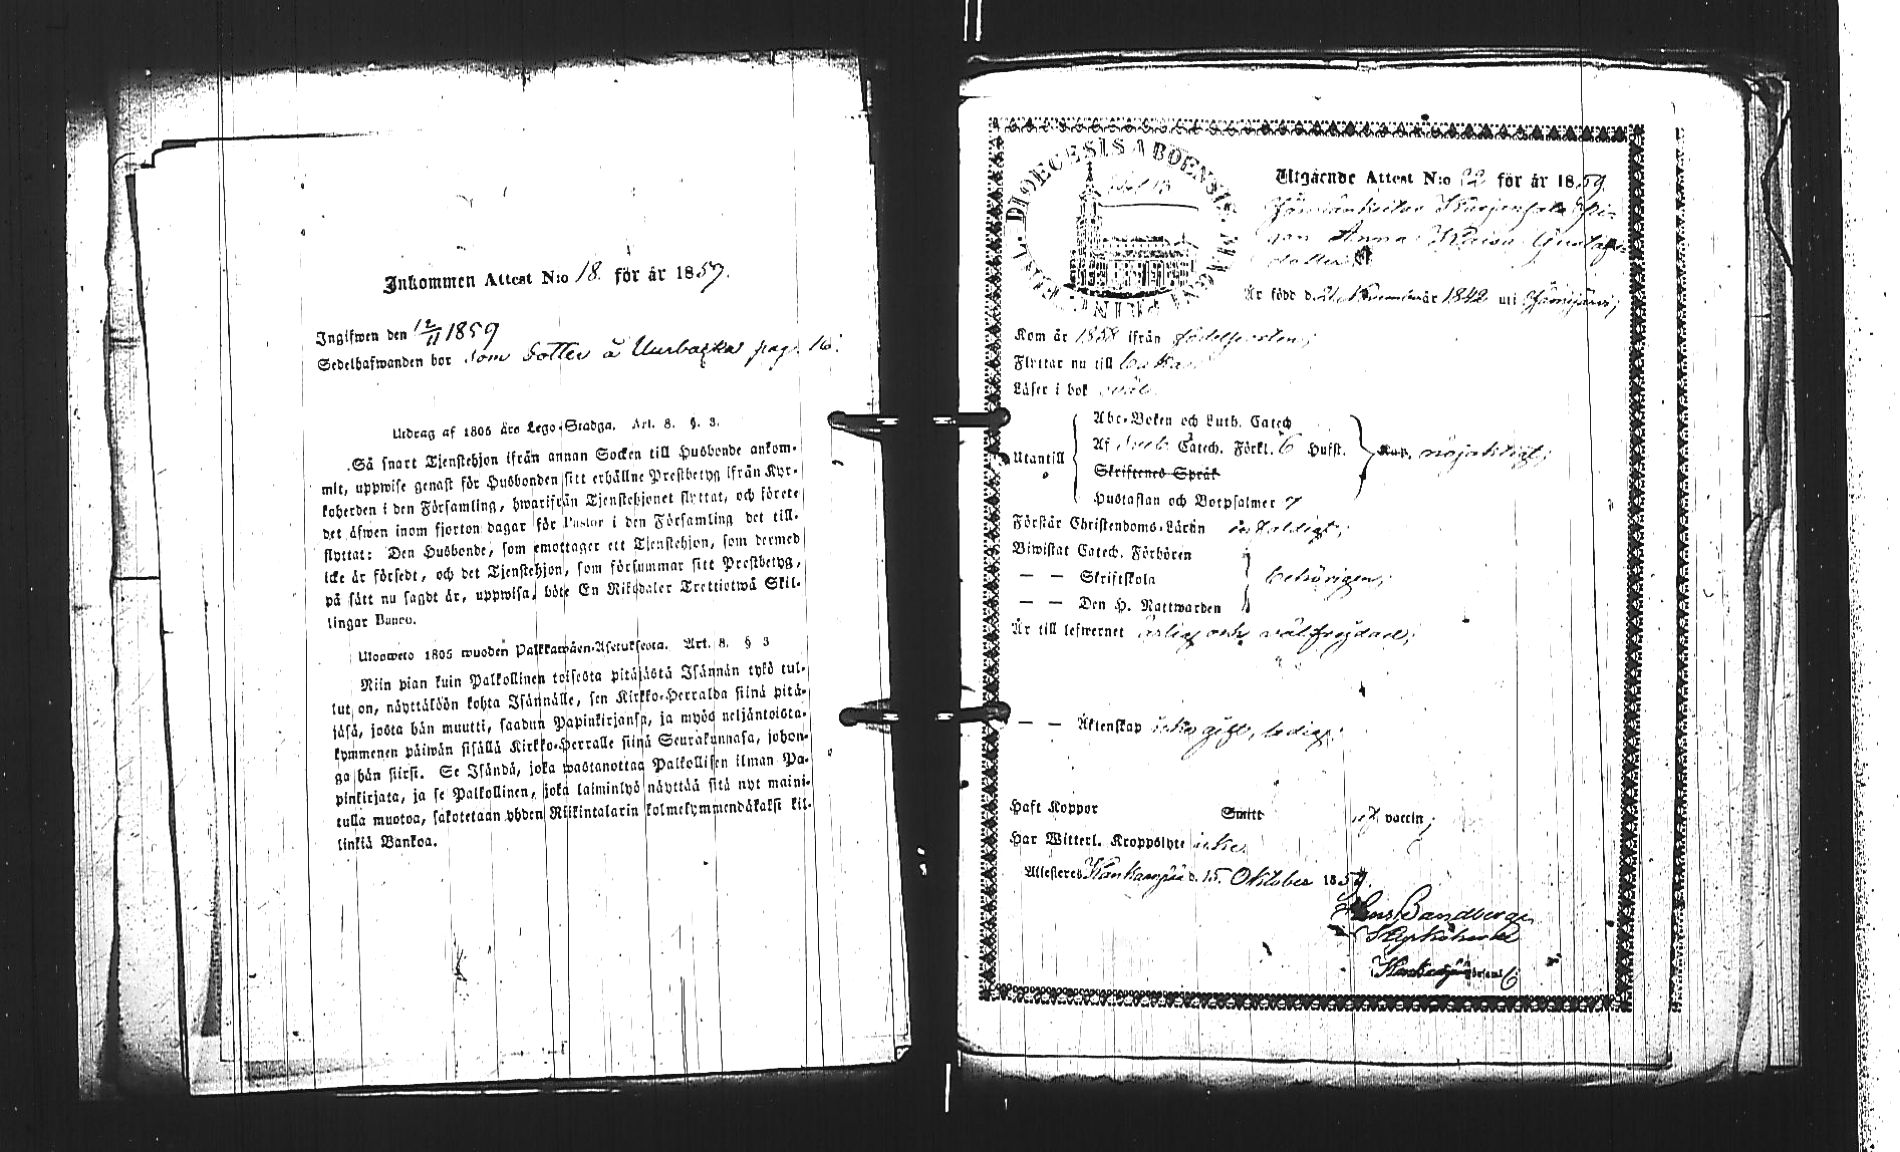 Inkommen Attest N:o 18. för år 1859.
Ingifwen den 12/11 1859
Sedelhafwanden bor som dotter å Uurbacka pag. 16.
Utdrag af 1805 års Lego-Stadga. Art. 8. §. 3.
Så snart Tjenstehjon ifrån annan Socken till Husbonde ankom-
mit, uppwise genast för Husbonden sitt erhållne Prestbetyg ifrån Kyr-
koherden i den Församling, hwarifrån Tjenstehjonet flyttat, och förete
det äfwen inom fjorton dagar för Pastor i den Församling det till-
flyttat: Den Husbonde, som emottager ett Tjenstehjon, som dermed
icke är försedt, och det Tjenstehjon, som försummar sitt Prestbetyg,
på sätt nu sagdt är, uppwisa, böte En Riksdaler Trettiotwå Skil-
lingar Banco.
Uloswето 1805 wuoden Palkkawäen-Asetuksesta. Art. 8. § 3
Niin pian kuin Palkollinen toisesta pitäjästä Isännän tykö tul-
lut on, näyttäköön kohta Isännälle, sen Kirkko-Herralda siinä pitä-
jäsä, josta hän muutti, saadun Papinkirjansa, ja myös neljäntoista-
kymmenen päiwän sisällä Kirkko-Herralle siinä Seurakunnasa, johon-
ga hän siirsi. Se Isändä, joka wastanottaa Palkollisen ilman Pa-
pinkirjata, ja se Palkollinen, joka laiminlyö näyttää sitä nyt maini-
tulla muotoa, sakotetaan yhden Riikintalarin kolmekymmendäkaksi kil-
linkiä Bankoa.
DIOECESIS ABOENSIS
Utgående Attest N:o 22 för år 1859.
Anna Kaisa Gustafs-
dotter
Är född d. 21 November 1842 uti Jämijärvi;
Kom år 1858 ifrån födelseorten;
Flyttar nu till
Läser i bok
Utantill
Abc-Boken och Luth. Catech
Af Catech. Förkl. 6 Hufst.
Skriftenes Språk
nöjaktigt;
Hustaflan och Botpsalmer 7
Förstår Christendoms-Läran
Biwistat Catech. Förhören
— — Skriftskola
behörigen;
— — Den H. Nattwarden
Är till lefwernet ärlig och välfrejdad;
— — Äktenskap icke gift, ledig;
Haft Koppor Smitt vaccin;
Har Witterl. Kroppslyte icke.
Attesteras Kankaanpää d. 15. Oktober 1859.
Sandberg
Kyrkoherde